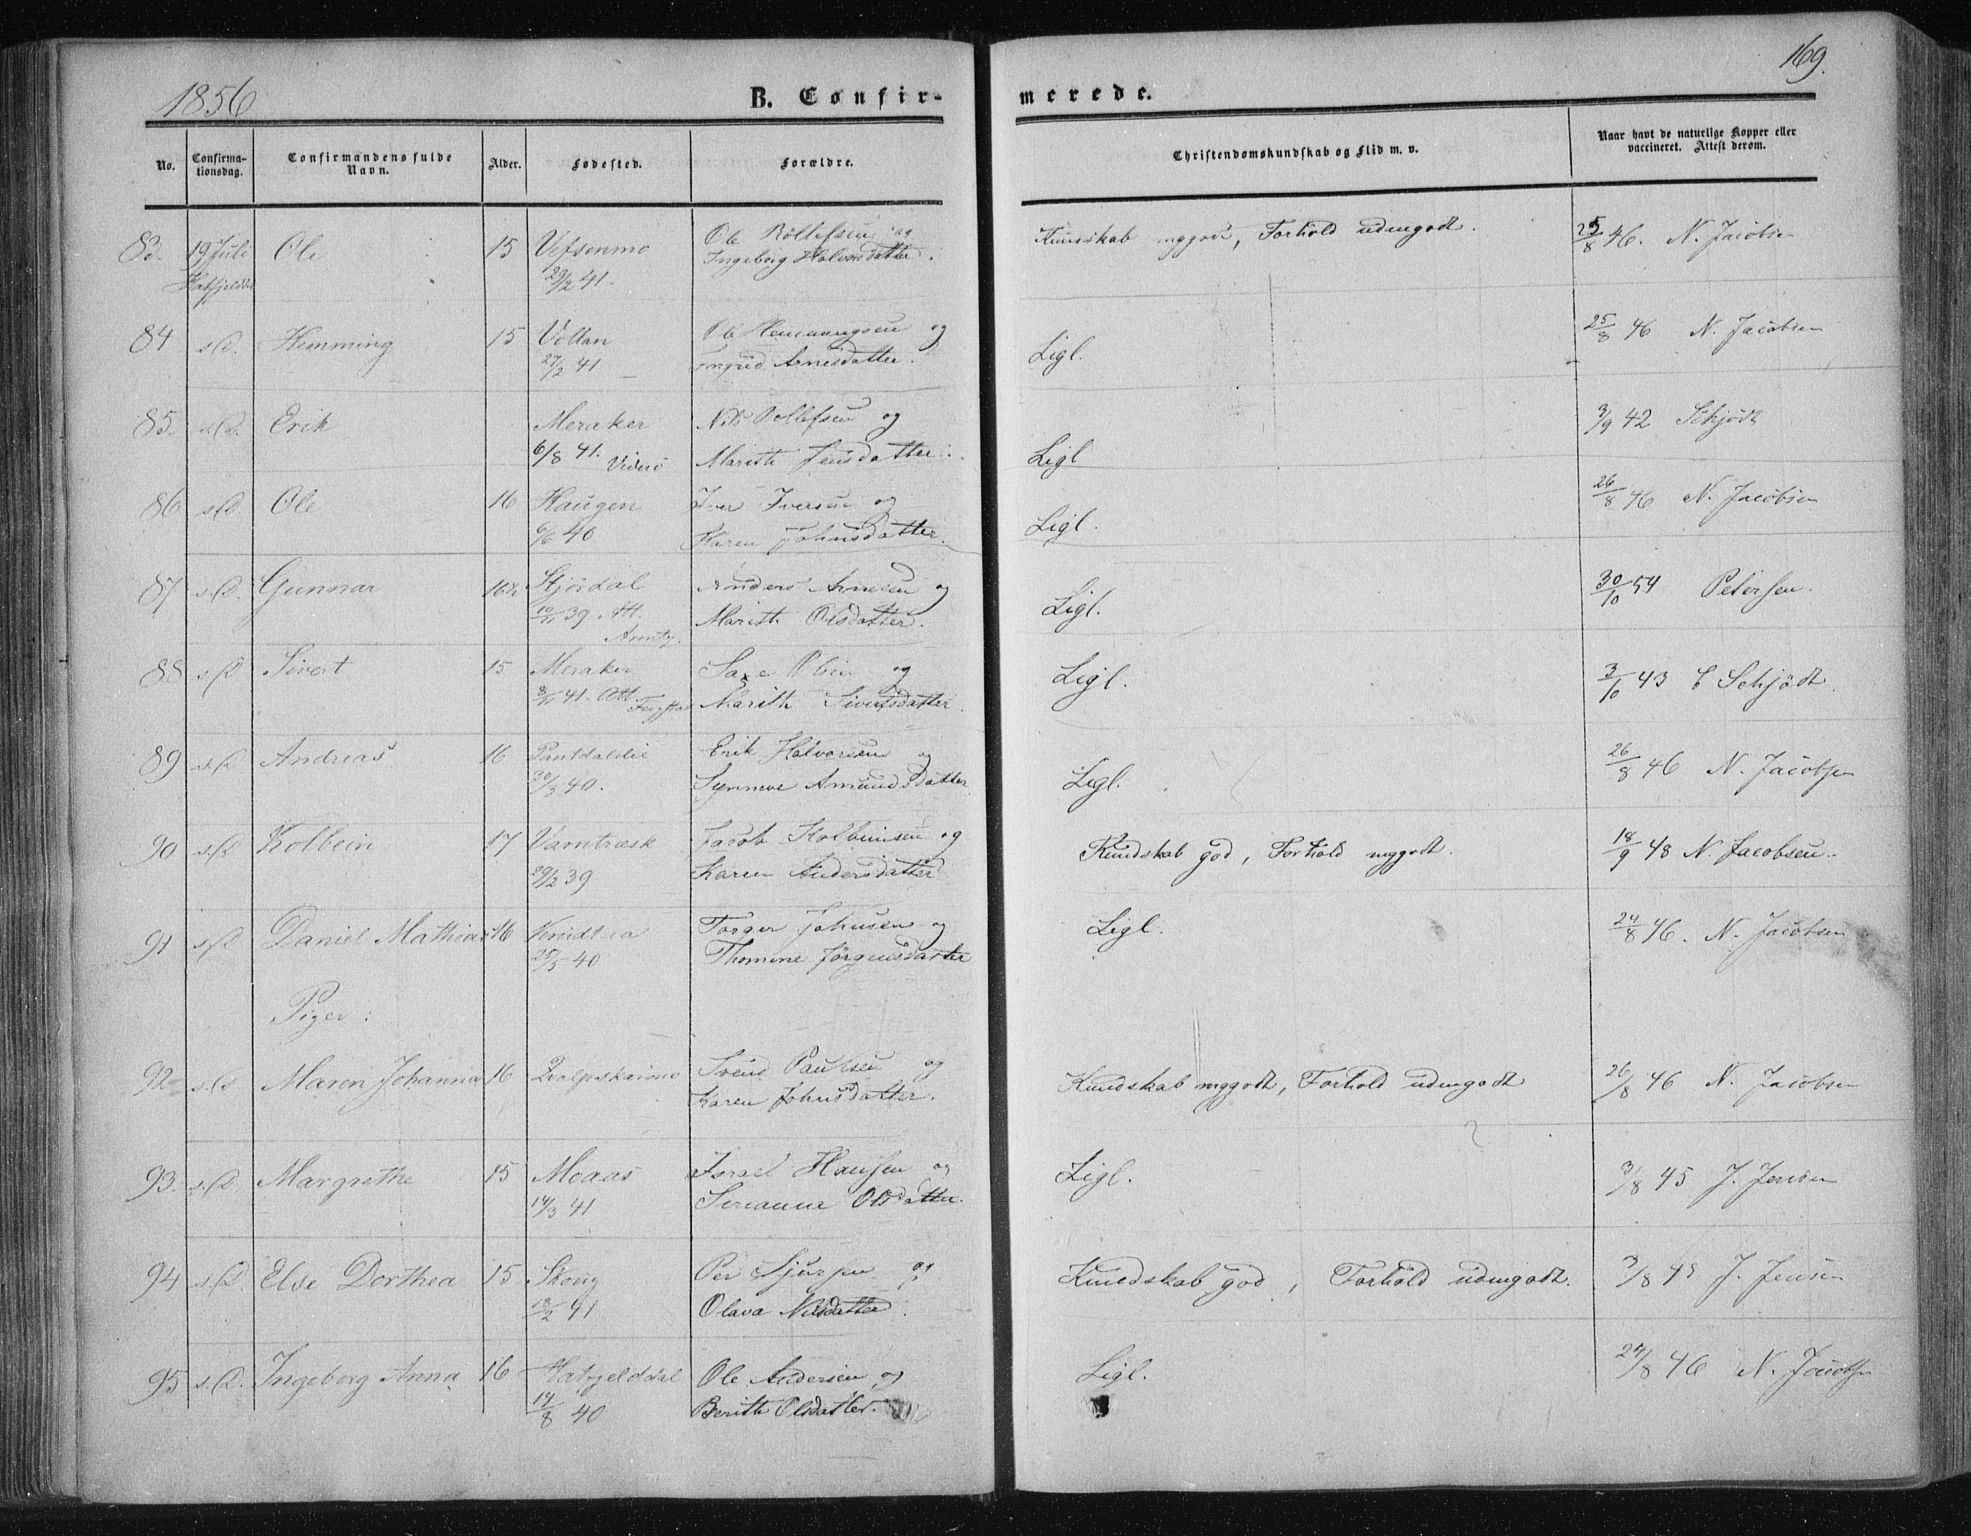 1856
B. Confir-
merede.
169.
No.
Confirma-
tionsdag.
Confirmandens fulde
Navn.
Alder.
Fødested.
Forældre.
Christendomskundskab og Flid m. v.
Naar havt de naturlige Kopper eller
vaccineret. Attest derom.
83. 19 Juli Ole 15 Vefsenmo Ole Rollefsen og Kundskab mggodt, Forhold udmgodt. 25/8 46. N. Jacobsen
29/2 41. Ingeborg Halvorsdatter.
84 s.D. Hemming 15 Vollan Ole Hemmingsen og Ligl. 25/8 46 N. Jacobsen
27/2 41 Ingrid Arnesdatter.
85. s.D. Erik Meraker Nils Rollefsen og Ligl 3/9 42 Schjödt
6/8 41. Marith Jensdatter.
86 s.D. Ole 16 Haugen Iver Iversen og Ligl. 26/8 46 N. Jacobsen
6/6 40 Karen Johnsdatter.
87 s.D. Gunnar 16½ Stjördal Anders Arnesen og Ligl. 30/10 54 Petersen.
39 Att. Marith Olsdatter.
88 s.D. Sivert 15 Meraker Saxe Olsen og Ligl. 3/10 43 E Schjödt.
41. Att. Marith Sivertsdatter.
89 s.D. Andreas 16 Erik Halvorsen og Ligl. 26/8 46 N. Jacobsen
30/3 40. Synneve Amundsdatter
90 s.D. Kolbein 17 Varntræsk Jacob Kolbeinsen og Kundskab god, Forhold mggodt. 18/9 48 N. Jacobsen.
29/2 39 Karen Andersdatter
91 s.D. Daniel Mathias 16 Torger Johnsen og Ligl. 24/8 46. N. Jacobsen
25/5 40 Thomine Jörgensdatter
Piger:
92 s.D. Maren Johanna 16 Svend Paulsen og Kundskab mggodt, Forhold udmgodt 26/8 46 N. Jacobsen
Karen Johnsdatter.
93. s.D. Margrethe 15 Moaas Israel Hansen og Ligl. 3/8 45 J. Jensen
14/3 41 Serianna Olsdatter.
94 s.D. Else Dorthea 15 Skoug Per Sjursen og Kundskab god, Forhold udmgodt. 3/8 45 J. Jensen
13/2 41 Olava Nilsdatter.
95 s.D. Ingeborg Anna 16 Hatfjelddal Ole Andersen og Ligl. 24/8 46 N. Jacobsen
14/8 40 Berith Olsdatter.